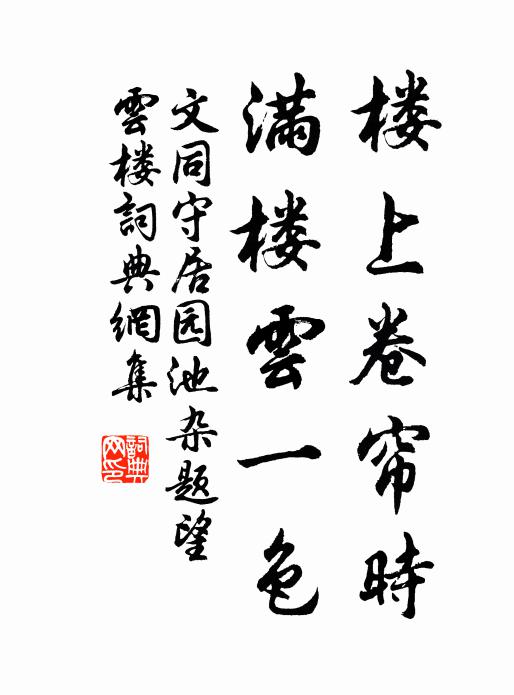 楼上卷帘時
滿楼雲一色
文同守居园池杂题望
雲楼詞典網集
詞典网印